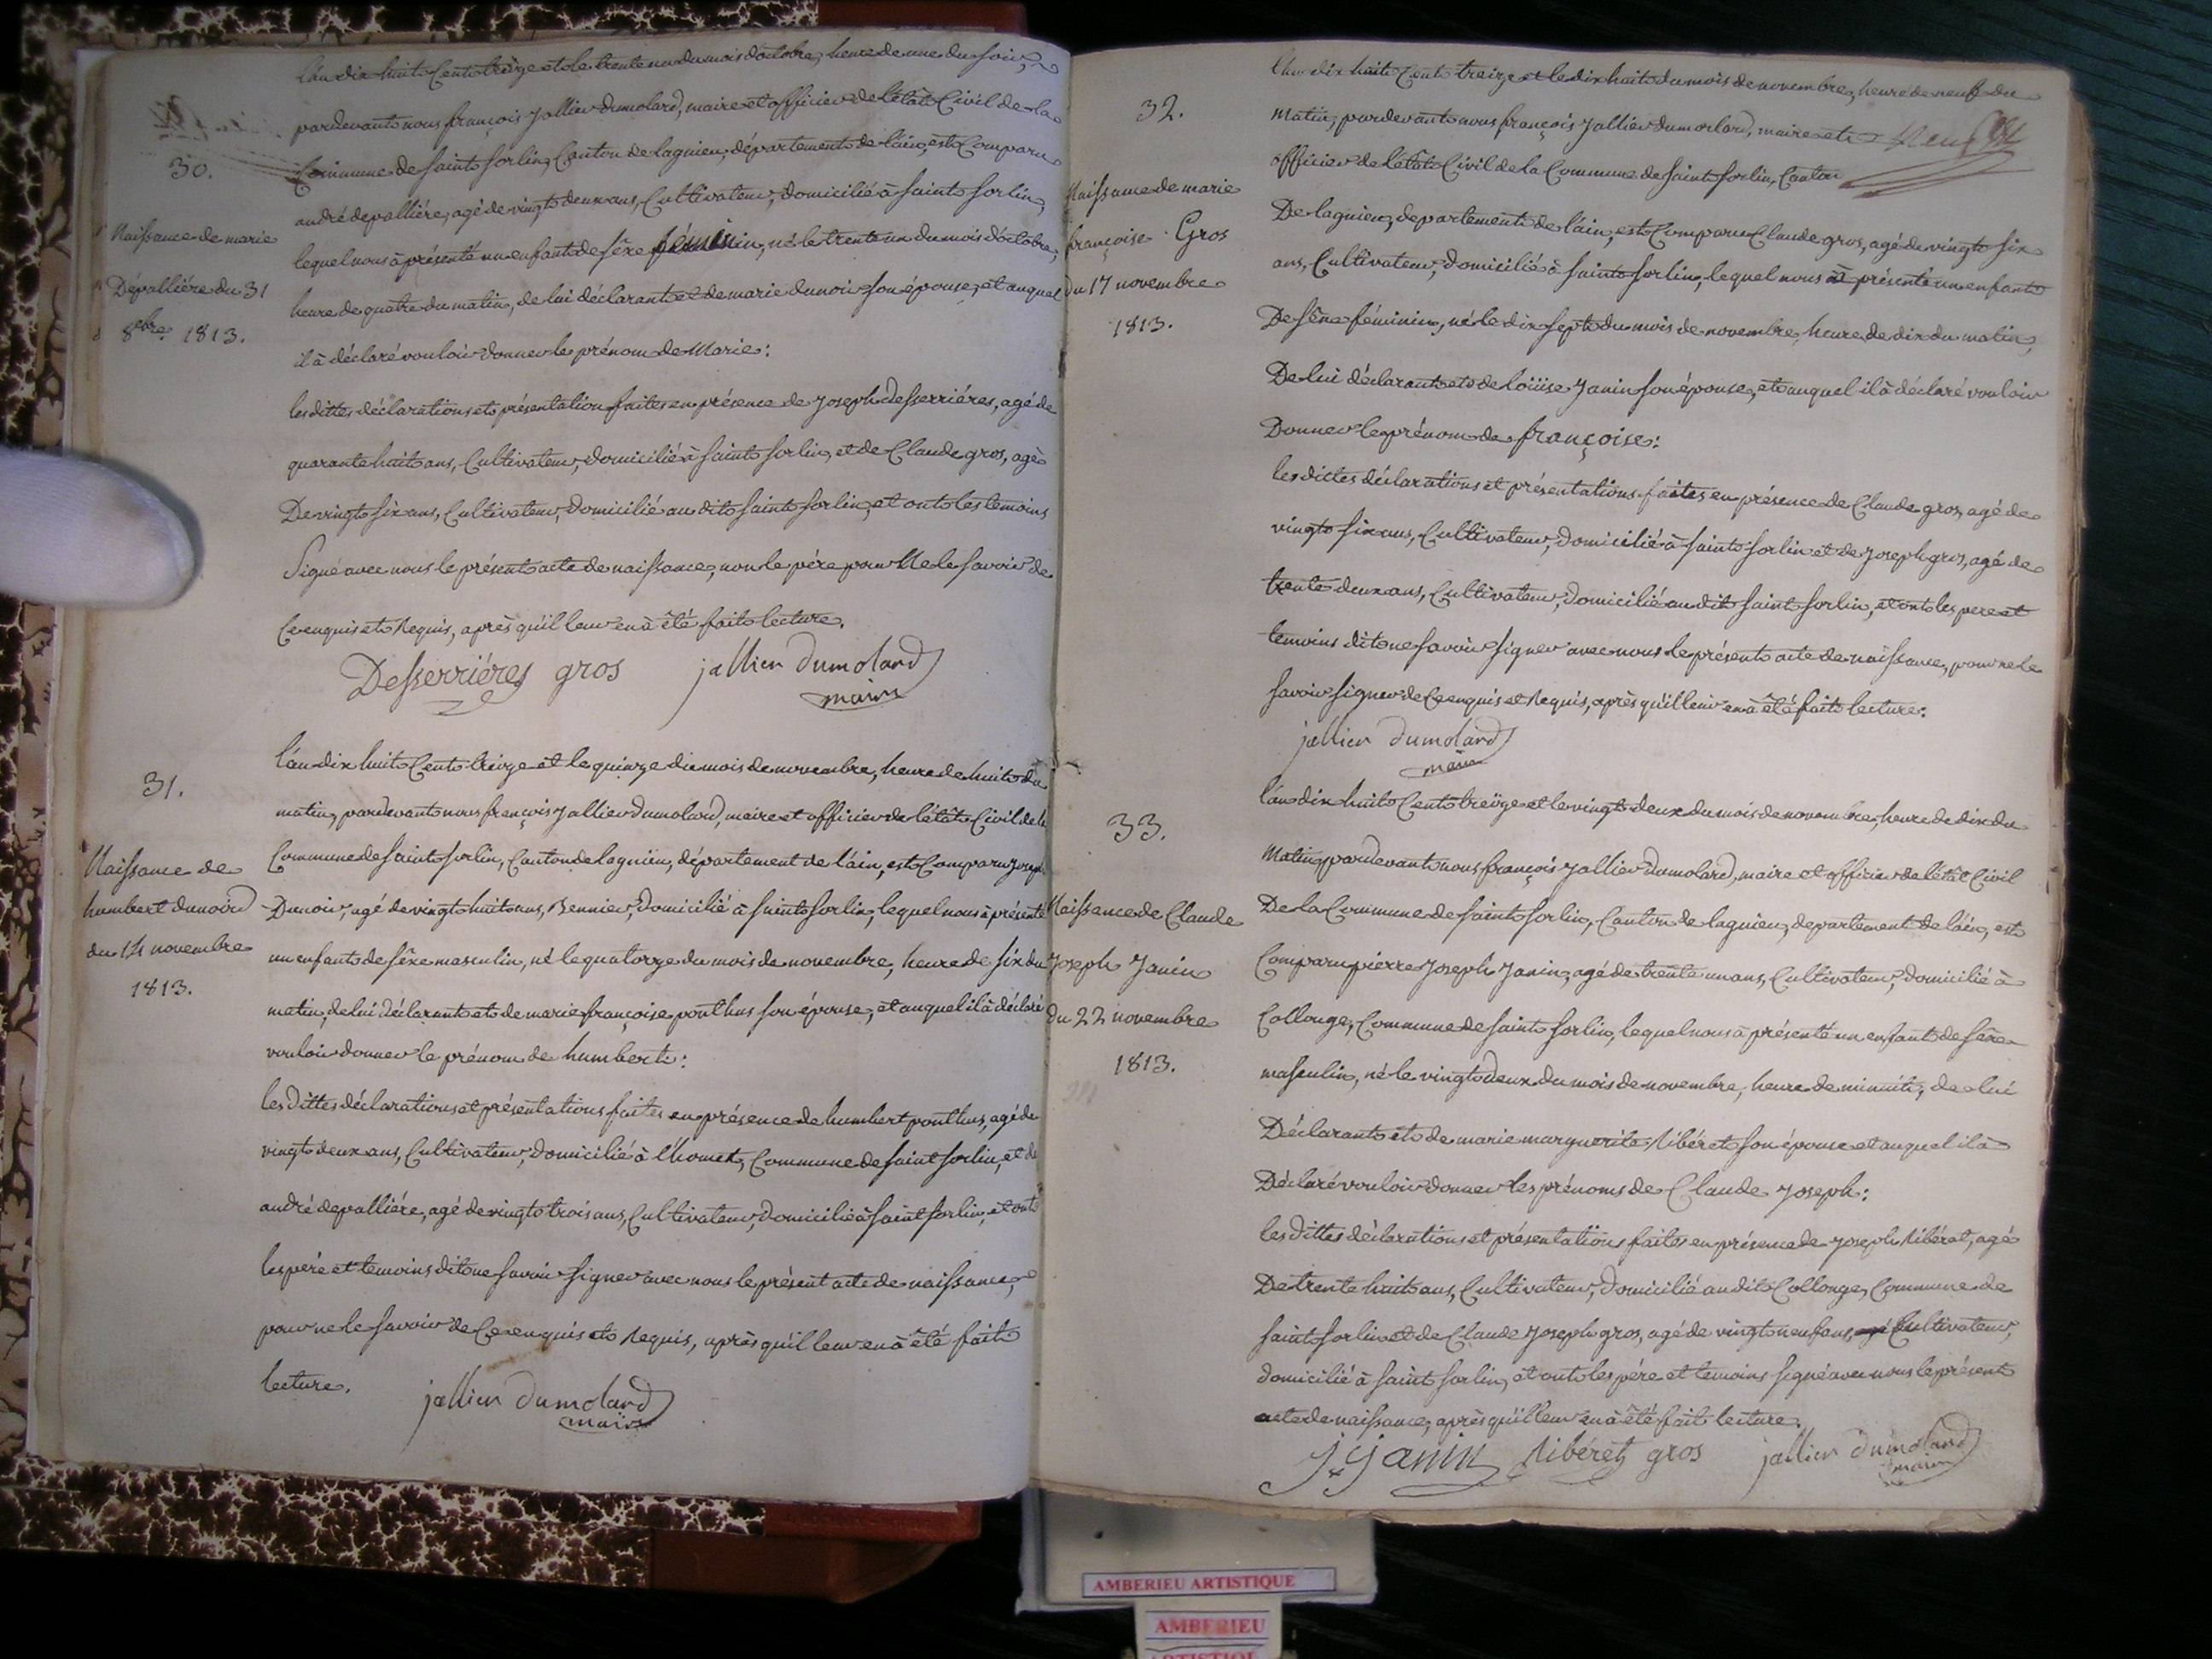 30.
Naissance de marie
Dépalliére du 31
8ebre. 1813.
L'an dix huit Cent treize et le trente un du mois d'octobre, heure de une du soir,
pardevant nous françois Jallier dumolard, maire et officier de l'êtât Civil de la
Commune de saint sorlin, Canton de lagnieu, département de l'ain, est Comparu
andré depalliére, agé de vingt deux ans, Cultivateur, domicilié à saint sorlin,
lequel nous à présenté un enfant de sêxe féminin, né le trente un du mois d'octobre,
heure de quatre du matin, de lui déclarant et de marie dunoir son épouse, et auquel
il à déclaré vouloir donner le prénom de Marie:
les dittes déclarations et présentation faites en présence de Joseph desserriéres, agé de
quarante huit ans, Cultivateur, domicilié à saint sorlin, et de Claude gros, agé
De vingt six ans, Cultivateur, domicilié au dit saint sorlin, et ont les temoins
Signé avec nous le présent acte de naissance, non le pére pour Ne le savoir de
Ce enquis et Requis, après qu'il leur en à êté fait lecture.
Desserriéres gros jallier dumolard
maire
31.
Naissance de
humbert dunoird
du 14 novembre
1813.
l'an dix huit Cent treize et le quinze du mois de novembre, heure de huit du
matin, pardevant nous françois Jallier dumolard, maire et officier de l'êtât Civil de la
Commune de saint sorlin, Canton de lagnieu, département de l'ain, est Comparu Joseph
Dunoir, agé de vingt huit ans, Bennier, domicilié à saint sorlin, lequel nous à présenté
un enfant de sêxe masculin, né le quatorze du mois de novembre, heure de six du
matin, de lui déclarant et de marie françoise ponthus son épouse, et auquel il à déclaré
vouloir donner le prénom de humbert:
les dittes déclarations et présentations faites en présence de humbert ponthus, agé de
vingt deux ans, Cultivateur, domicilié à l'homet, Commune de saint sorlin, et de
andré depalliére, agé de vingt trois ans, Cultivateur, domicilié à saint sorlin, et ont
les pére et temoins dit ne savoir signer avec nous le présent acte de naissance,
pour ne le savoir de Ce enquis et Requis, après qu'il leur en à êté fait
lecture.
jallier dumolard
maire
32.
Naissance de marie
françoise Gros
du 17 novembre
1813.
L'an dix huit Cent treize et le dix huit du mois de novembre, heure de neuf du
Matin, pardevant nous françois Jallier dumorlard, maire et
officier de l'êtât Civil de la Commune de saint sorlin, Canton
De lagnieu, departement de l'ain, est Comparu Claude gros, agé de vingt six
ans, Cultivateur, domicilié à saint sorlin, lequel nous à présenté un enfant
De sêxe féminin, né le dix sept du mois de novembre, heure de dix du matin,
De lui déclarant et de loüise Janin son épouse, et auquel il à déclaré vouloir
Donner le prénom de françoise:
les dittes déclarations et présentations faites en présence de Claude gros, agé de
vingt six ans, Cultivateur, domicilié à saint sorlin et de Joseph gros, agé de
trente deux ans, Cultivateur, domicilié au dit saint sorlin, et ont les pere et
temoins dit ne savoir signer avec nous le présent acte de naissance, pour ne le
savoir signer de Ce enquis et Requis, après qu'il leur en à êté fait lecture:
jallier dumolard
maire
33.
Naissance de Claude
Joseph Janin
du 22 novembre
1813.
l'an dix huit Cent treize et le vingt deux du mois de novembre, heure de dix du
Matin, pardevant nous françois Jallier dumolard, maire et officier de l'êtât Civil
De la Commune de saint sorlin, Canton de lagnieu, departement de l'ain, est
Comparu pierre Joseph Janin, agé de trente un ans, Cultivateur, domicilié à
Collonge, Commune de saint sorlin, lequel nous à présenté un enfant de sêxe
masculin, né le vingt deux du mois de novembre, heure de minuit, de lui
Déclarant et de marie marguerite Ribéret son épouse et auquel il à
Déclaré vouloir donner les prénoms de Claude Joseph:
les dittes déclarations et présentations faites en présence de Joseph Ribéret, agé
De trente huit ans, Cultivateur, domicilié au dit Collonge, Commune de
saint sorlin et de Claude Joseph gros, agé de vingt neuf ans, Cultivateur,
domicilié à saint sorlin, et ont les pére et temoins signé avec nous le présent
acte de naissance, après qu'il leur en à êté fait lecture.
J. janin Ribéret gros jallier dumolard
maire
AMBERIEU ARTISTIQUE
AMBERIEU
ARTISTIQUE